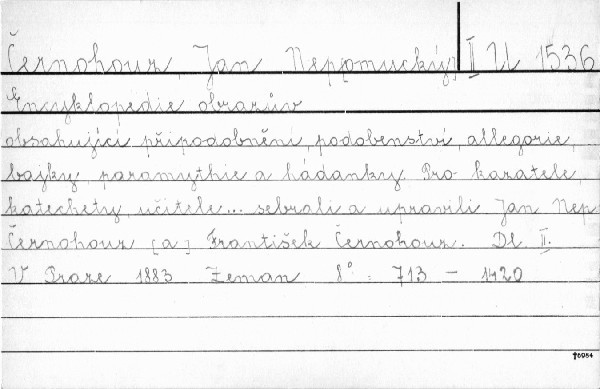 Černohouz, Jan Nep[omucký] II U 1536
Encyklopedie obrazův
obsahující připodobnění, podobenství, allegorie,
bajky, paramythie a hádanky. Pro kazatele,
katechety, učitele... sebrali a upravili Jan Nep.
Černohouz [a] František Černohouz. Dl. II.
V Praze 1883 Zeman 8° : 713 - 1420
†6984